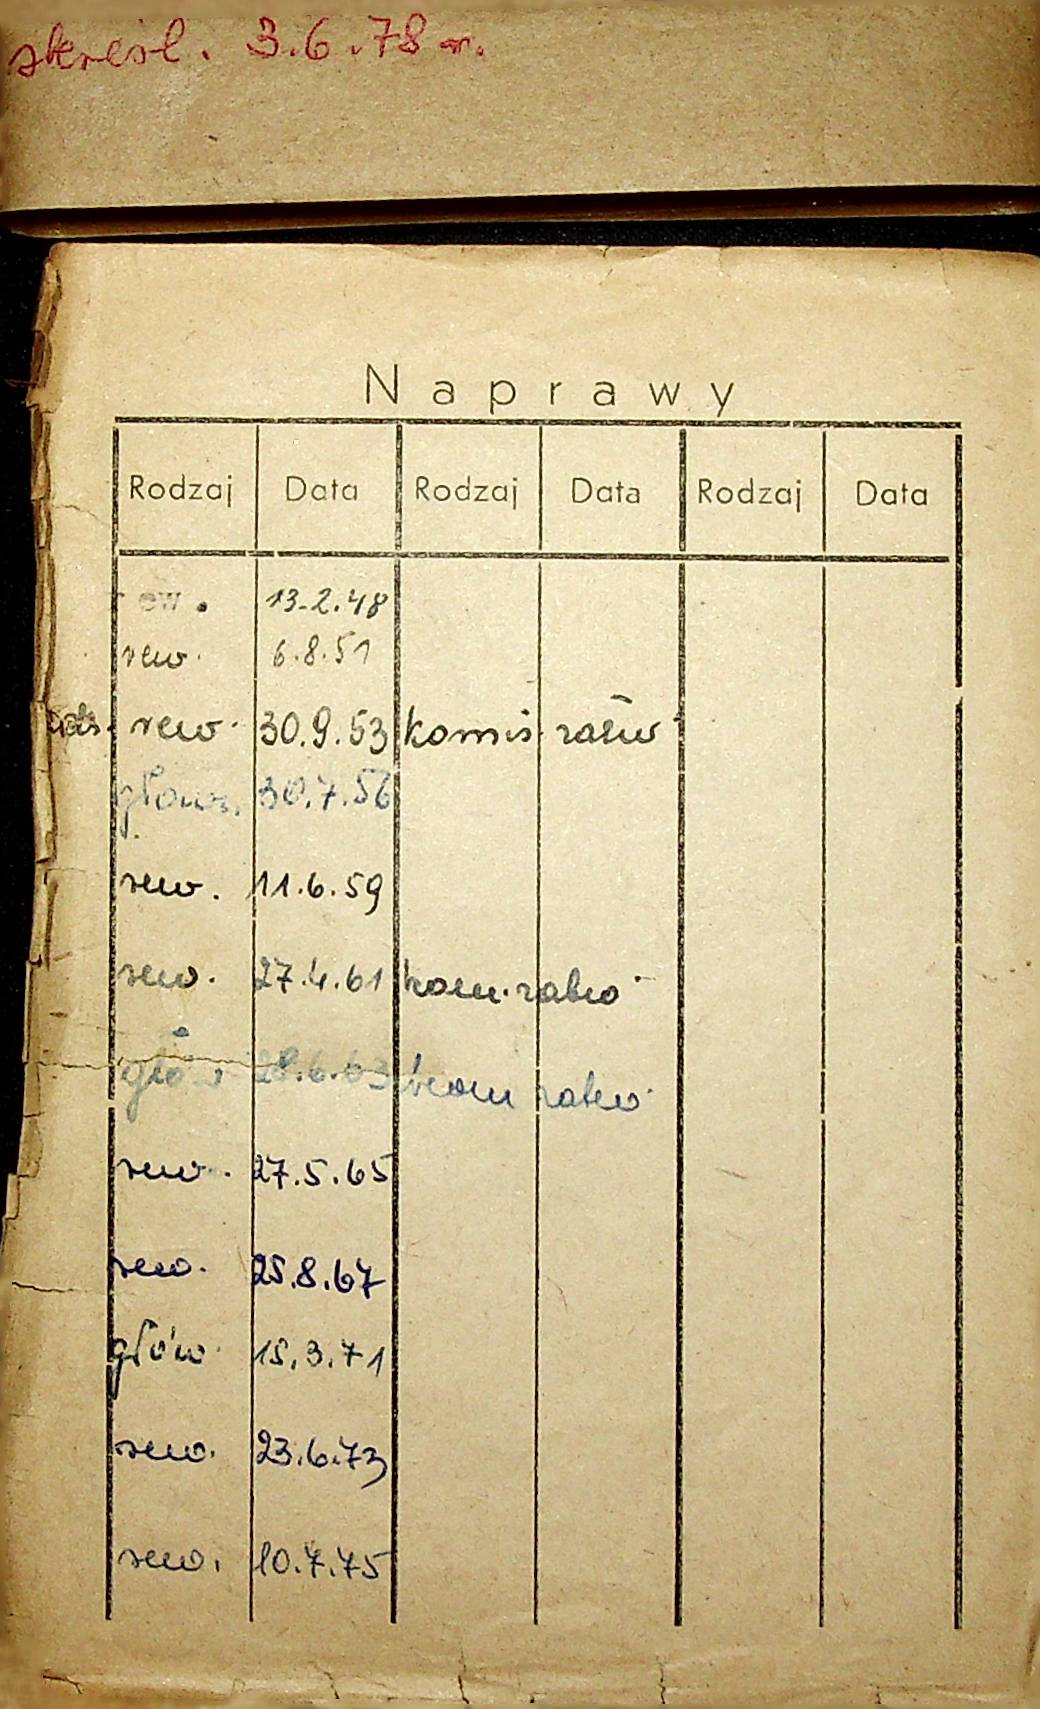 skreśl. 3.6.78 r.
Naprawy
Rodzaj Data Rodzaj Data Rodzaj Data
rew. 13.2.48
rew. 6.8.51
rew. 30.9.53 komis.
główn. 30.7.56
rew. 11.6.59
rew. 27.4.61 kom. ratew
głów 28.6.63 kom ratew
rew. 27.5.65
rew. 25.8.67
głów 15.3.71
rew. 23.6.73
rew. 10.7.75